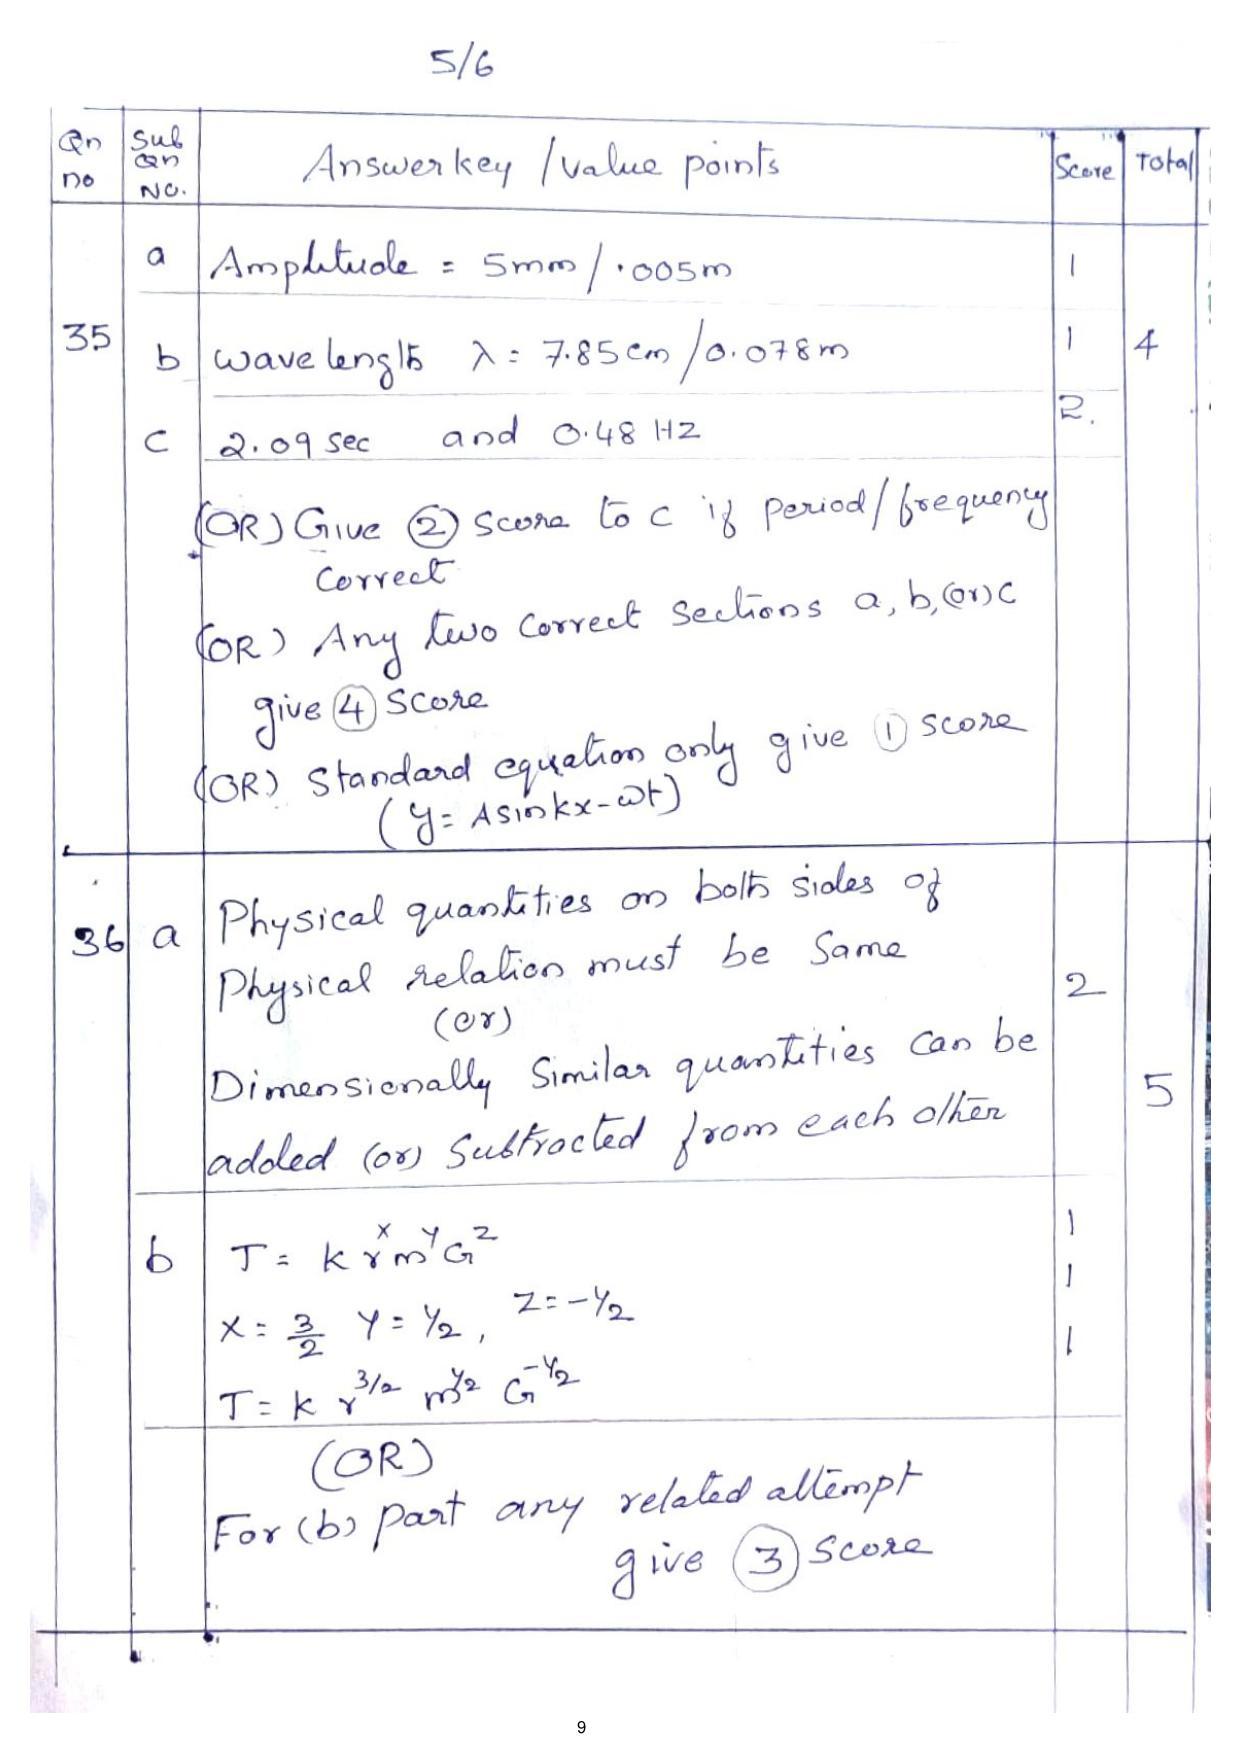 5/6
Qn no Sub Qn No. Answer key / value points Score Total
a Amplitude = 5mm / .005m 1
35 b wavelength λ = 7.85cm / 0.078m 1 4
c 2.09 sec and 0.48 HZ 2.
(OR) Give ② score to c if period/frequency
correct
(OR) Any two correct sections a, b, (or) c
give ④ score
(OR) Standard equation only give ① score
(y = A sin kx - ωt)
36 a Physical quantities on both sides of
Physical relation must be same 2
(or)
Dimensionally Similar quantities can be 5
added (or) Subtracted from each other
b T = k r^x m^y G^z 1
x = 3/2 y = 1/2, z = -1/2 1
T = k r^3/2 m^1/2 G^-1/2 1
(OR)
For (b) part any related attempt
give ③ score
9